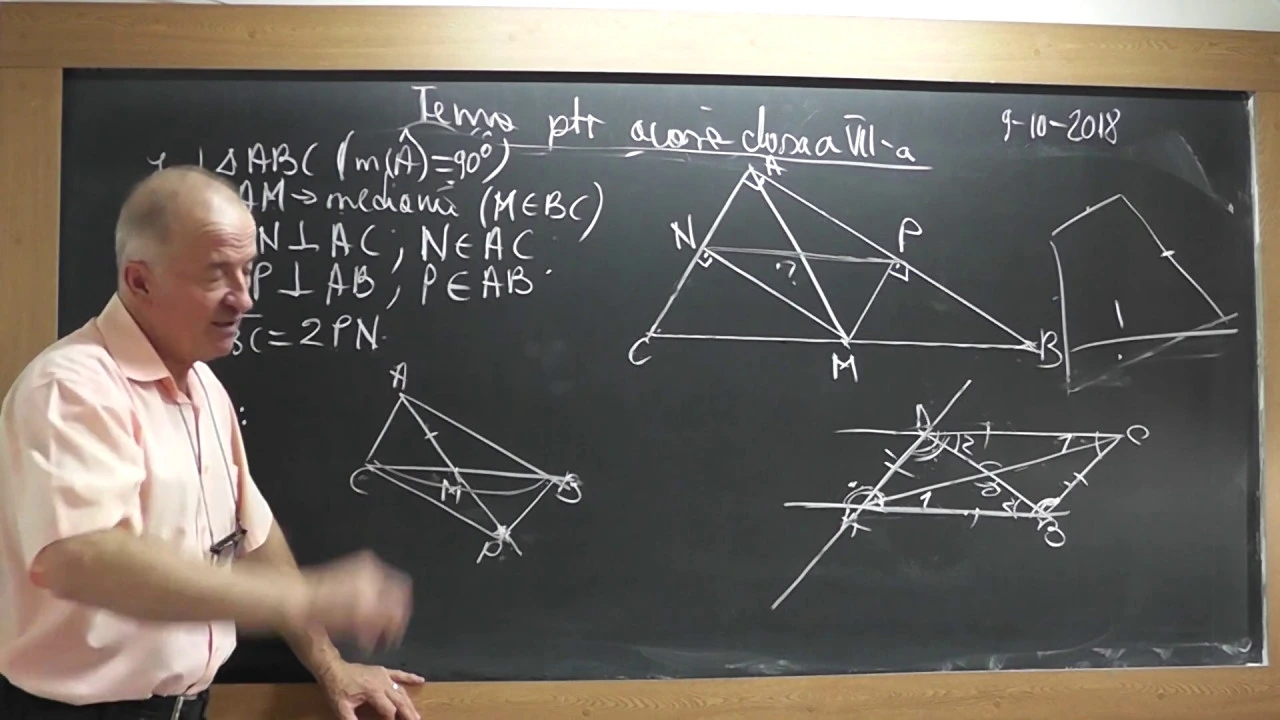 Tema ptr acasă clasa a VII-a
9-10-2018
△ABC (m(Â)=90°)
AM → mediană (M∈BC)
N⊥AC; N∈AC
P⊥AB, P∈AB
BC=2PN
:
A
N
P
?
C
M
B
A
C
M
B
A
C
1
2
1
2
B